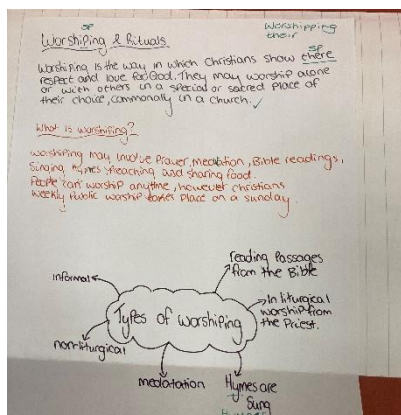 sp
Worshipping
Worshiping & Rituals
their
sp
Worshiping is the way in which Christians show there
respect and love for God. They may worship alone
or with others in a special or sacred place of
their choice, commonally in a church.
What is worshiping?
worshiping may involve Prayer, medatation, Bible readings,
Singing, Hymes, Preaching and sharing food.
People 'can' worship anytime, however christians
weekly Public worship takes place on a sunday.
reading Passages
from the Bible
informal
In liturgical
worship from
the Priest.
Types of worshiping
non-liturgical
medatation
Hymes are
Sung